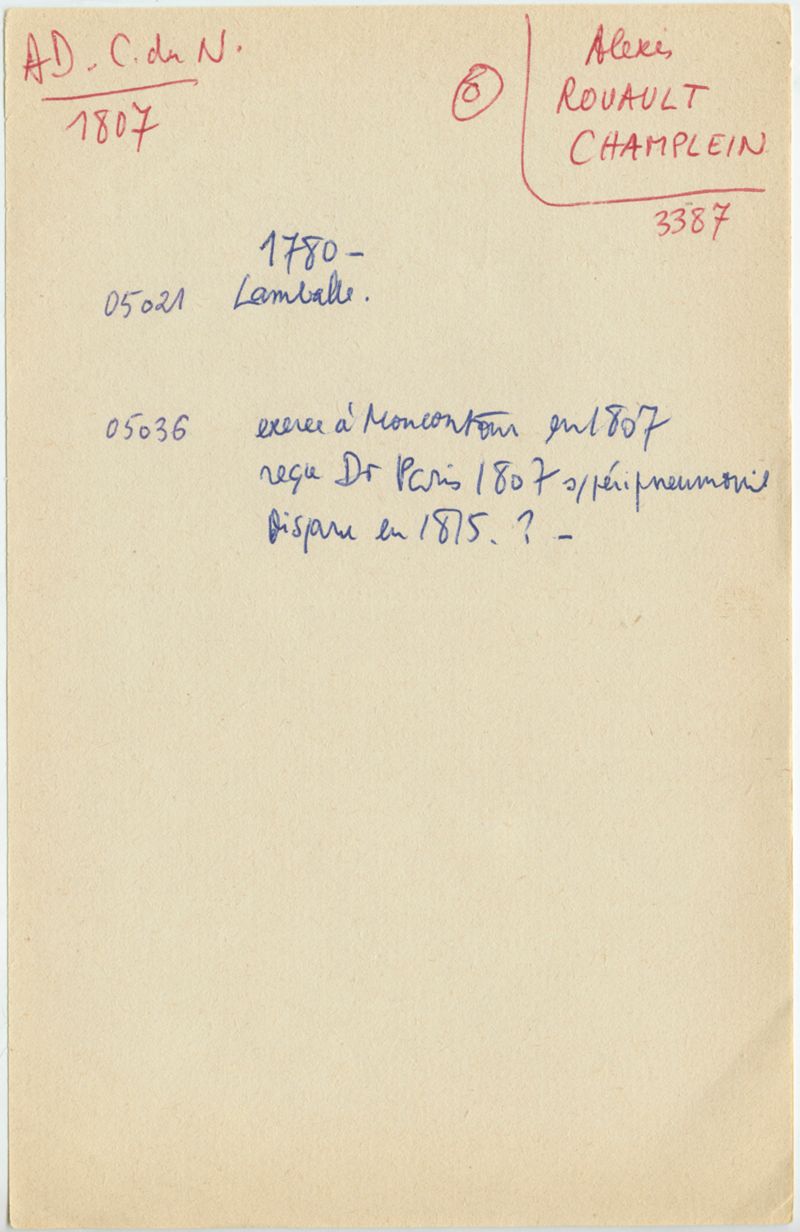 AD. C. du N.
1807
6
Alexis
ROUAULT
CHAMPLEIN
3387
1780 -
05021 Lamballe.
05036 exerce à Moncontour en 1807
reçu Dr Paris 1807 s/péripneumonie
Disparu en 1815. ? -